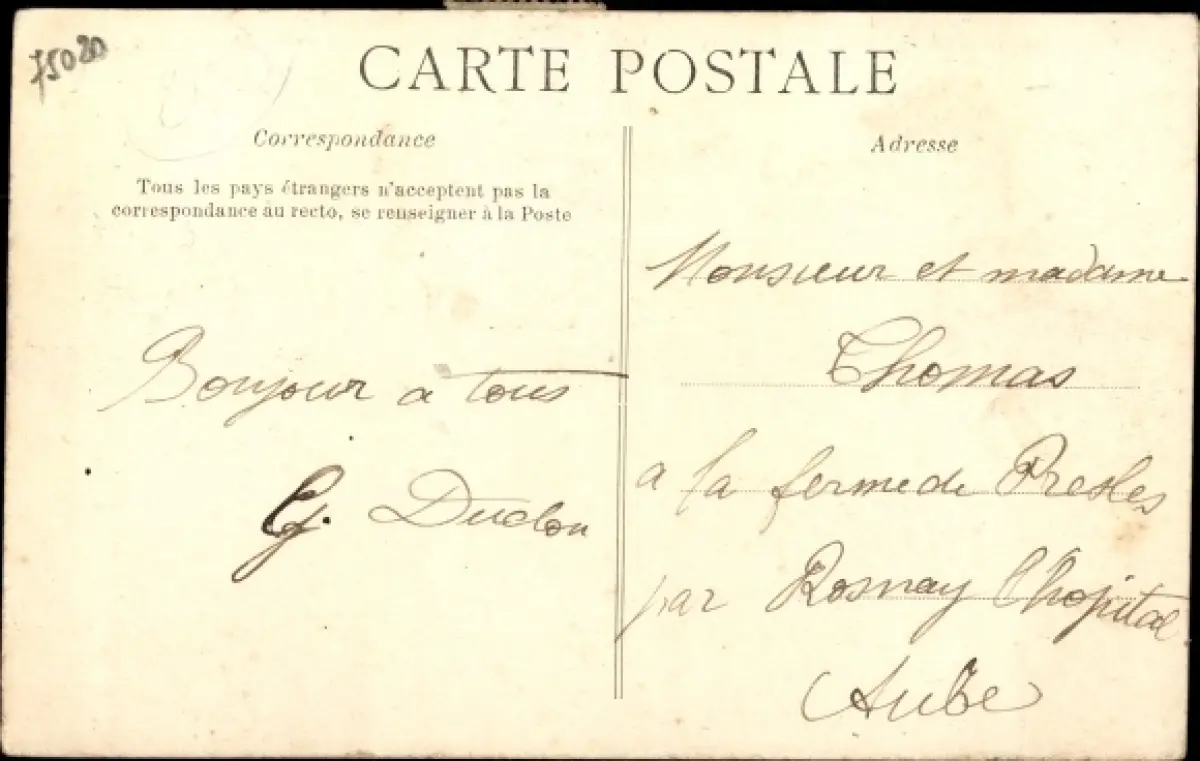 75020
CARTE POSTALE
Correspondance
Tous les pays étrangers n'acceptent pas la
correspondance au recto, se renseigner à la Poste
Bonjour a tous
G. Duclou
Adresse
Monsieur et madame
Thomas
a la ferme de Presles
par Rosnay l'hopital
Aube